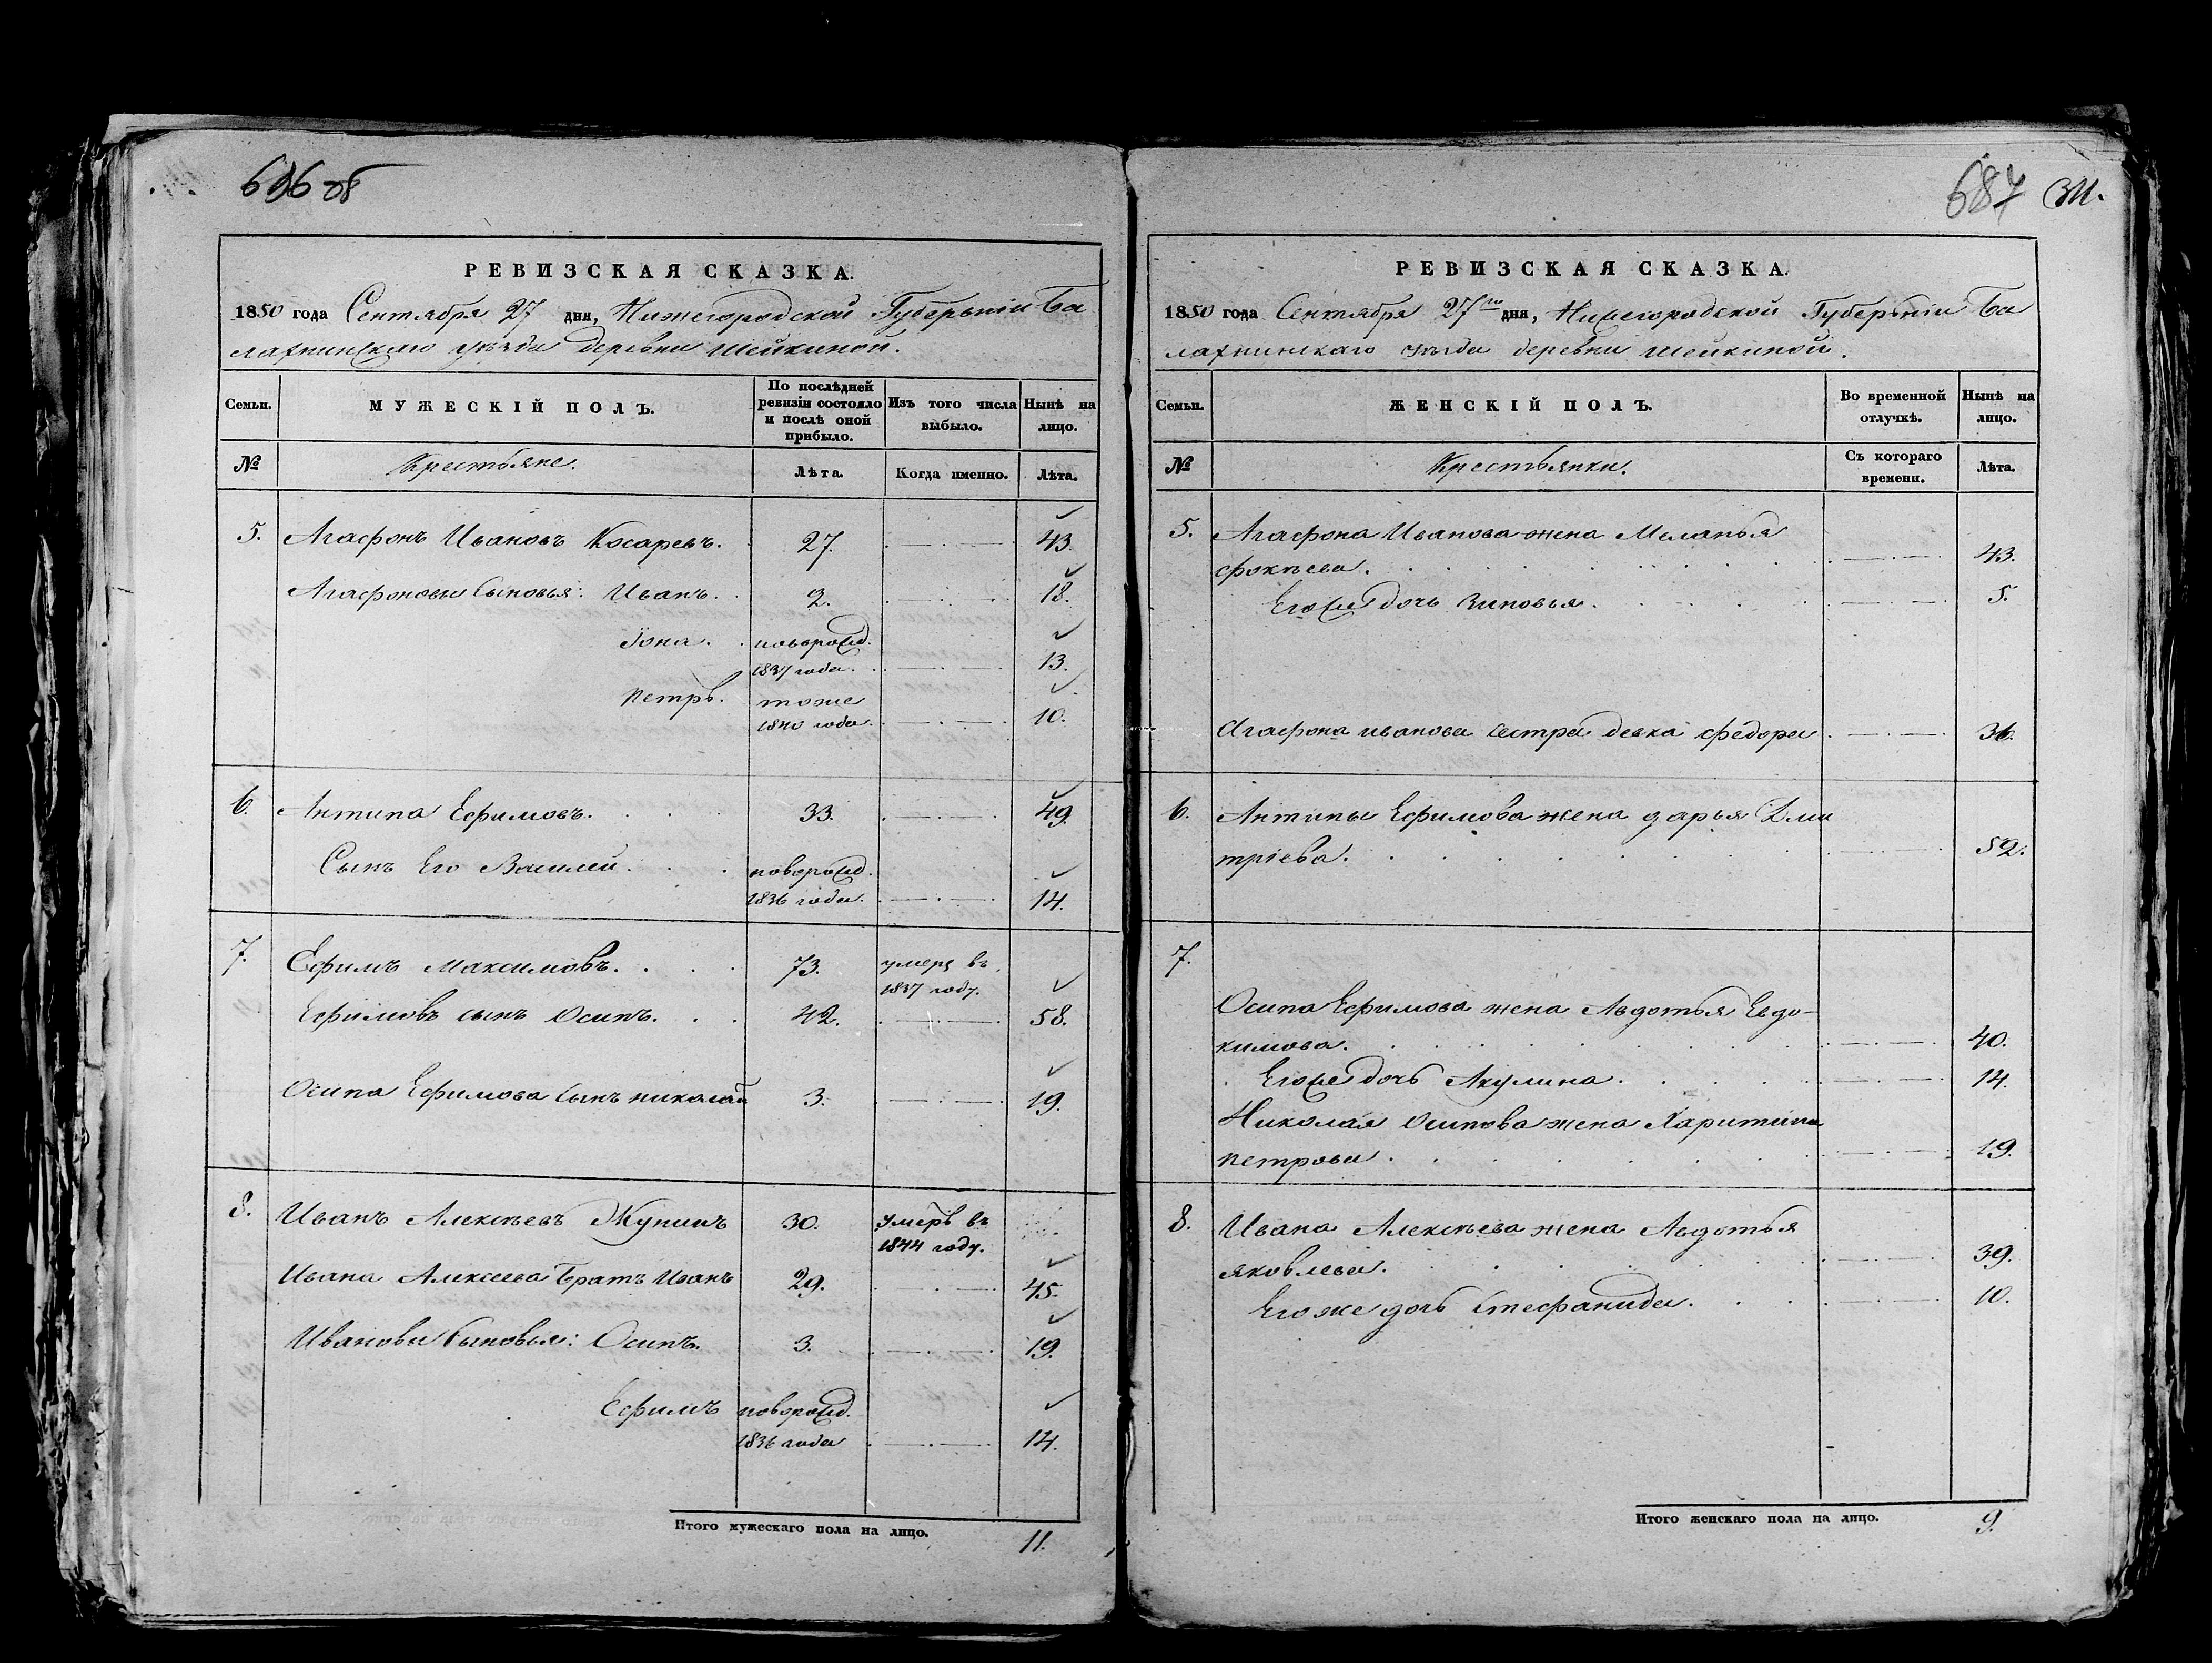 686 об
РЕВИЗСКАЯ СКАЗКА.
1850 года Сентября 27 дня, Нижегородской Губерьніи Ба
лахнинскаго уѣзда деревни Шейкиной.
Семьи.
МУЖЕСКІЙ ПОЛЪ.
По послѣдней ревизіи состояло и послѣ оной прибыло.
Изъ того числа выбыло.
Нынѣ на лицо.
№
Крестьяне.
Лѣта.
Когда именно.
Лѣта.
5. Агафонъ Ивановъ Косаревъ. 27. 43.
Агафоновы сыновья: Иванъ. 2. 18.
Іона. новорожд.
1837 года. 13.
Петръ. тоже
1840 года. 10.
6. Антипа Ефимовъ. 33. 49.
Сынъ Его Василей. новорожд.
1836 года. 14.
7. Ефимъ Максимовъ. 73. умеръ въ
1837 году.
Ефимовъ сынъ Осипъ. 42. 58.
Осипа Ефимова сынъ николай 3. 19.
8. Иванъ Алексѣевъ Жунинъ 30. умеръ въ
1844 году.
Ивана Алексеева Братъ Иванъ 29. 45.
Ивановы сыновья: Осипъ. 3. 19.
Ефимъ новорожд.
1836 года 14.
Итого мужескаго пола на лицо. 11.
687
РЕВИЗСКАЯ СКАЗКА.
1850 года Сентября 27го дня, Нижегородской Губерьніи Ба
лахнинскаго уѣзда деревни Шейкиной.
Семьи.
ЖЕНСКІЙ ПОЛЪ.
Во временной отлучкѣ.
Нынѣ на лицо.
№
Крестьянки.
Съ котораго времени.
Лѣта.
5. Агафона Иванова жена Меланья
фокѣева. 43.
Егоже дочь Зиновья. 5.
Агафона иванова сестра девка федора 36.
6. Антипы Ефимова жена дарья Дми
тріева. 52.
7.
Осипа Ефимова жена Авдотья Евдо-
кимова. 40.
Егоже дочь Акулина. 14.
Николая Осипова жена Харитина
петрова. 19.
8. Ивана Алексѣева жена Авдотья
яковлева. 39.
Егоже дочь Стефанида. 10.
Итого женскаго пола на лицо. 9.